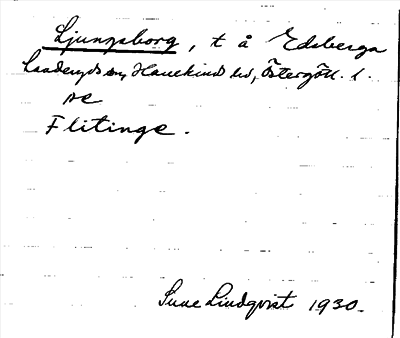 Ljungsborg, t å Edsberga
Landeryds sn, Hanekinds hd, Östergötl. l.
se
Flitinge.
Sune Lindqvist 1930.